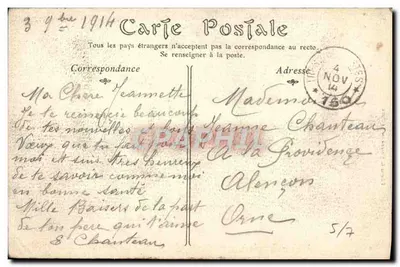 3 9bre 1914
Carte Postale
Tous les pays étrangers n'acceptent pas la correspondance au recto.
Se renseigner à la poste.
Correspondance
Adresse
Ma Chère Jeannette
Je te remercie beaucoup
de tes nouvelles
Vœux que tu fais pour
moi et suis très heureux
de te savoir comme moi
en bonne santé
Mille Baisers de la part
de ton père qui t'aime
Chanteau
4
NOV
14
* 150 *
Mademoiselle
Jeanne Chanteau
A la Providence
Alençon
Orne
5/7